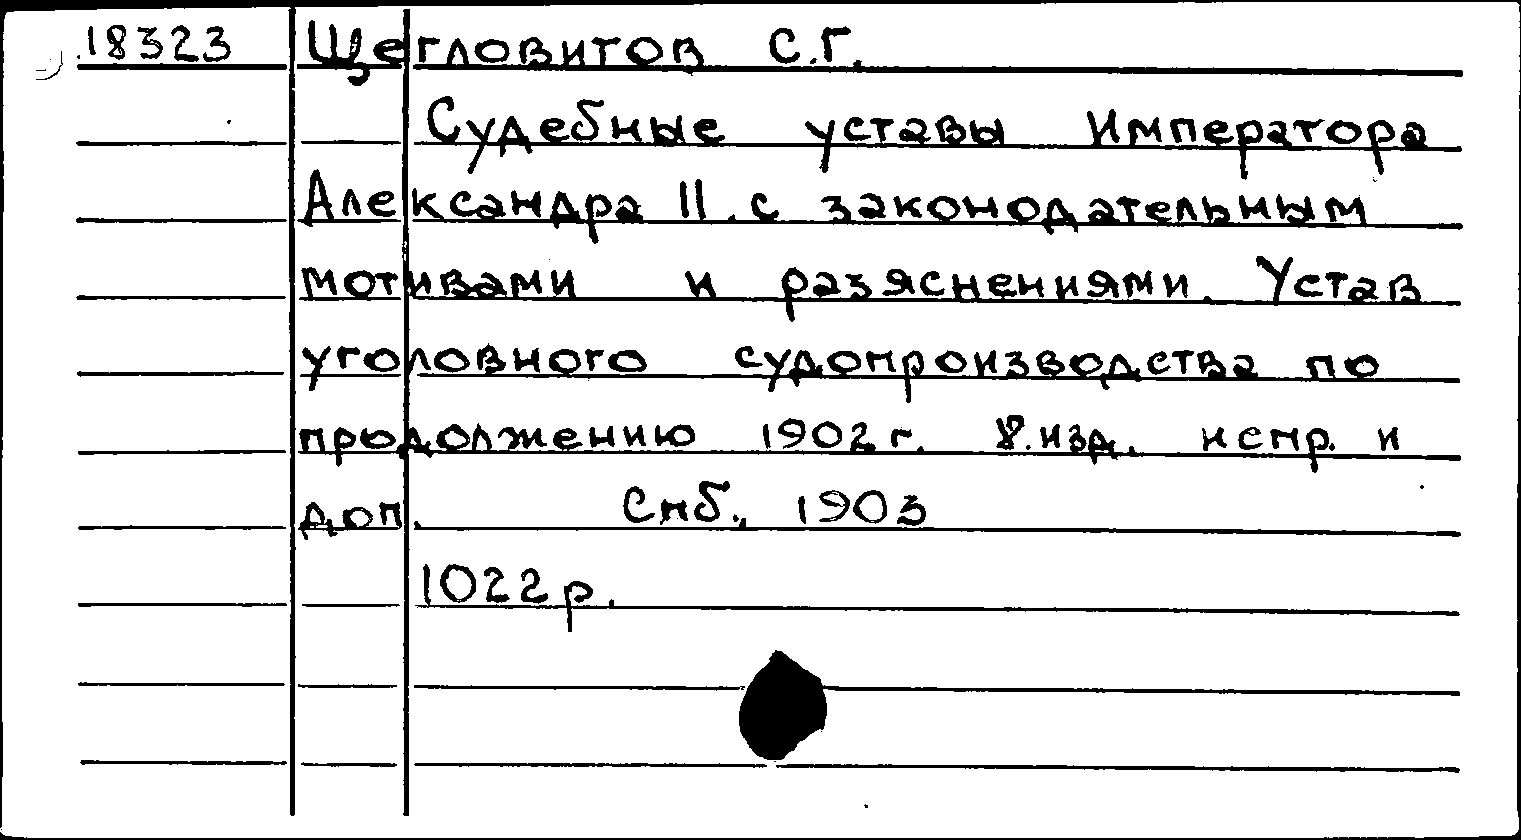 18323 Щегловитов С.Г.
Судебные уставы Императора
Александра II. с законодательным
мотивами и разяснениями. Устав
уголовного судопроизводства по
продолжению 1902 г. 8.изд. испр. и
доп. Спб., 1903
1022 р.